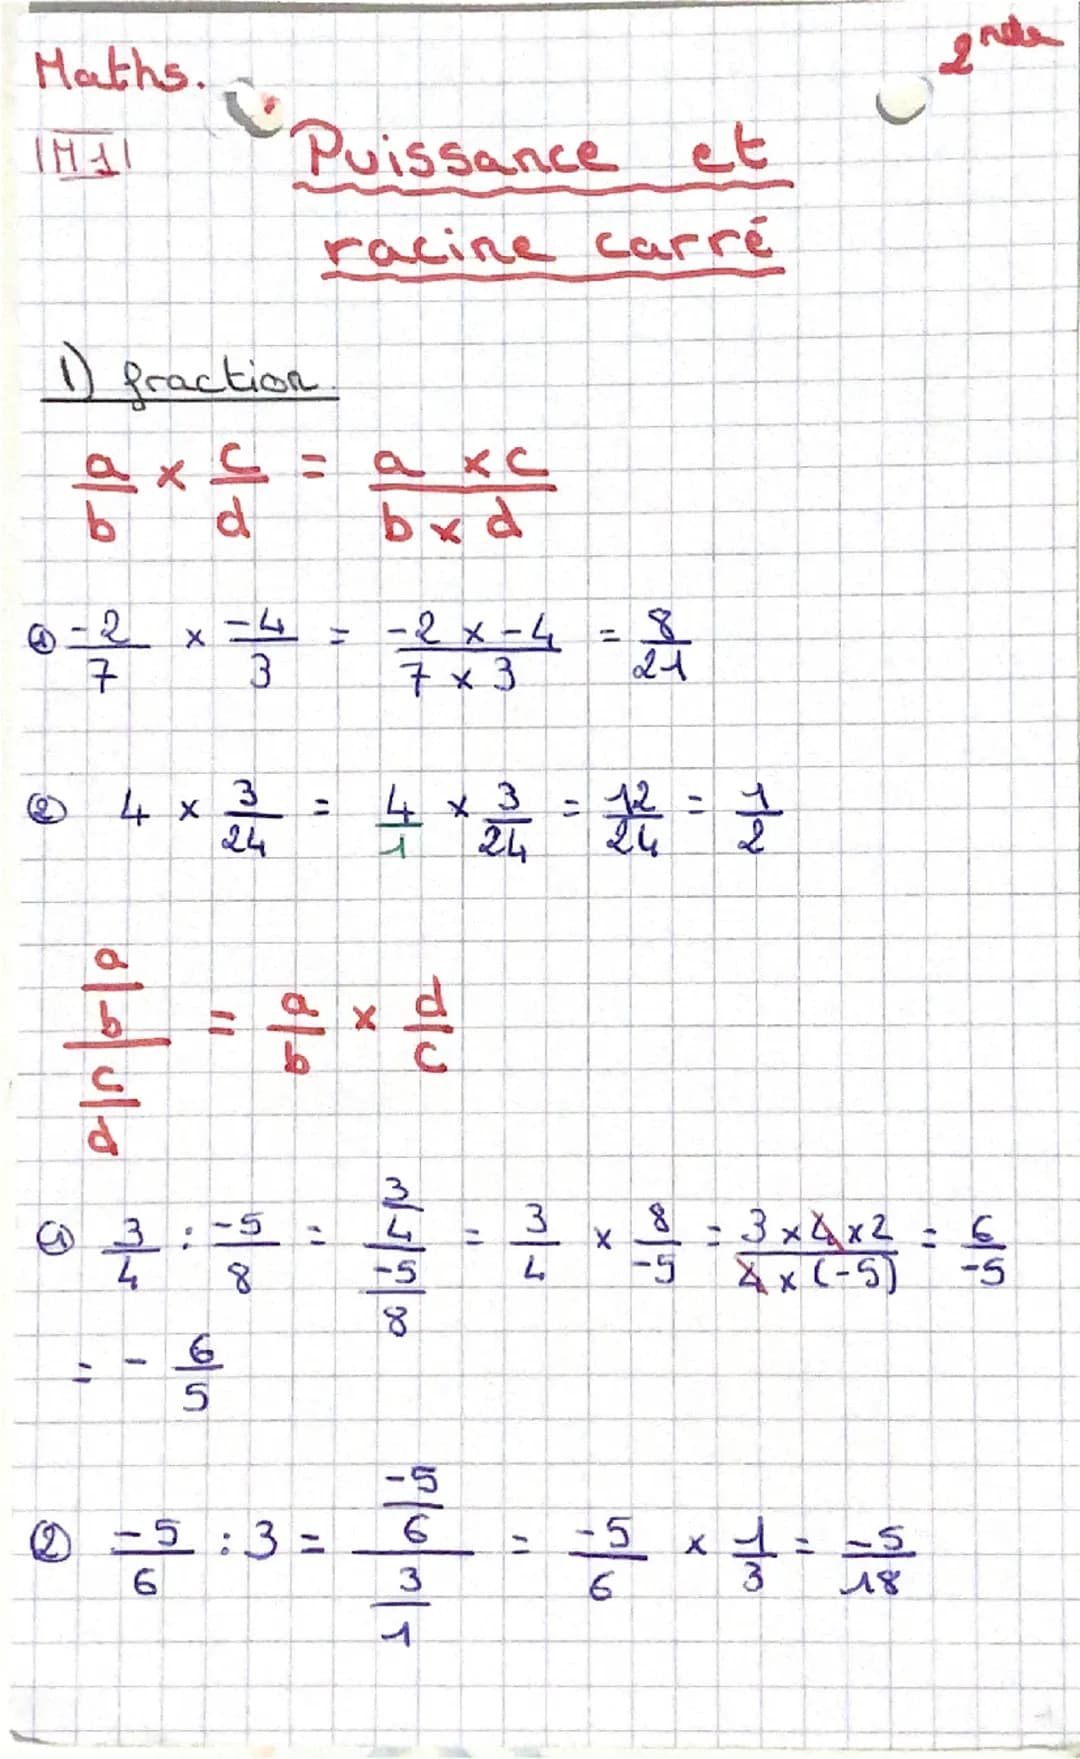 Maths.
2nde
M1
Puissance et
racine carré
1) fraction.
a/b × c/d = a × c / b × d
① -2/7 × -4/3 = -2 × -4 / 7 × 3 = 8/21
② 4 × 3/24 = 4/1 × 3/24 = 12/24 = 1/2
a/b / c/d = a/b × d/c
① 3/4 : -5/8 = 3/4 / -5/8 = 3/4 × 8/-5 = 3 × 4 × 2 / 4 × (-5) = 6/-5
= - 6/5
② -5/6 : 3 = -5/6 / 3/1 = -5/6 × 1/3 = -5/18